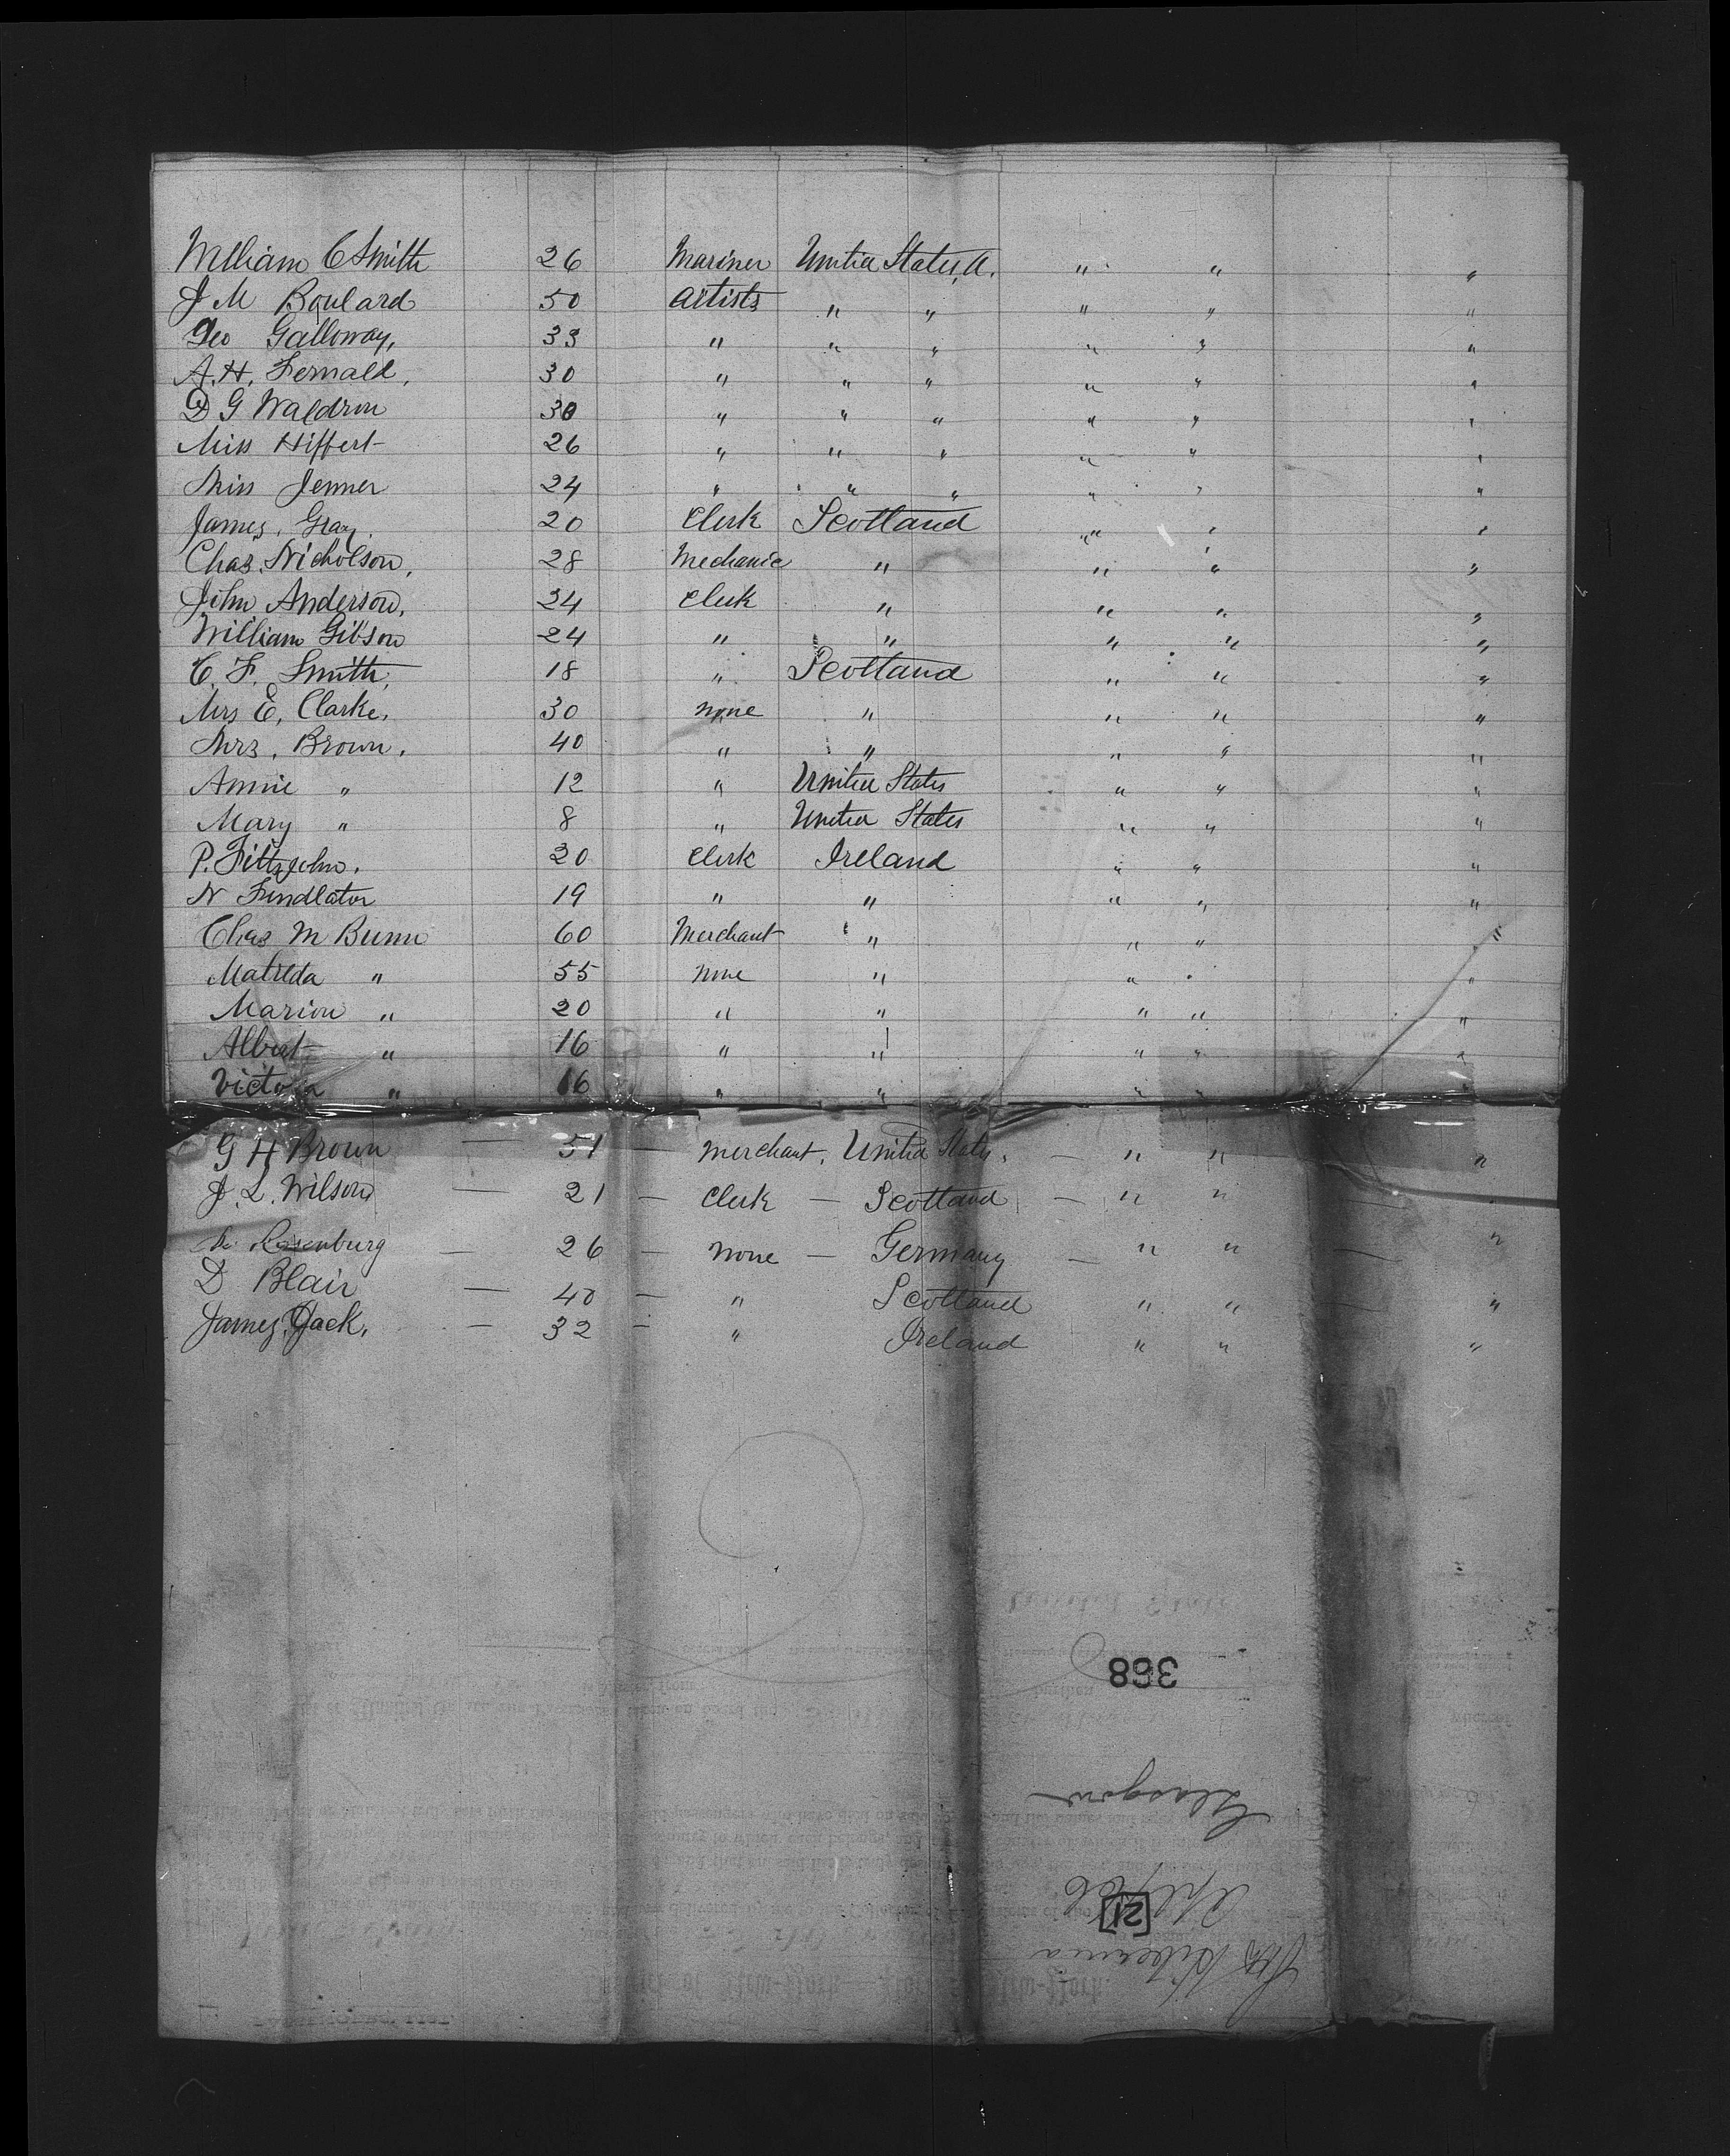 William C Smith 26 Mariner United States, A. " " "
J M Boulard 50 Artists " " " " "
Geo Galloway, 33 " " " " " "
A. H. Fernald, 30 " " " " " "
D G Waldron 30 " " " " " "
Miss Hiffert 26 " " " " " "
Miss Jenner 24 " " " " " "
James, Gray. 20 Clerk Scotland " " "
Chas. Nicholson, 28 Mechanic " " " "
John Anderson, 24 Clerk " " " "
William Gibson 24 " " " " "
C. F. Smith, 18 " Scotland " " "
Mrs E, Clarke, 30 none " " " "
Mrs. Brown, 40 " " " " "
Annie " 12 " United States " " "
Mary " 8 " United States " " "
P. Fittzjohn. 20 Clerk Ireland " " "
N Findlator 19 " " " " "
Chas M Bunn 60 Merchant " " " "
Matilda " 55 none " " " "
Marion " 20 " " " " "
Albert " 16 " " " " "
Victoria " 16 " " " " "
G H Brown — 51 — Merchant, United States, — " " "
J. L. Wilson — 21 — Clerk — Scotland — " " "
Rosenburg — 26 — none — Germany — " " — "
D Blair — 40 — " Scotland " " — "
James, Jack, — 32 — " Ireland " " "
368
Glasgow
21
Hibernia